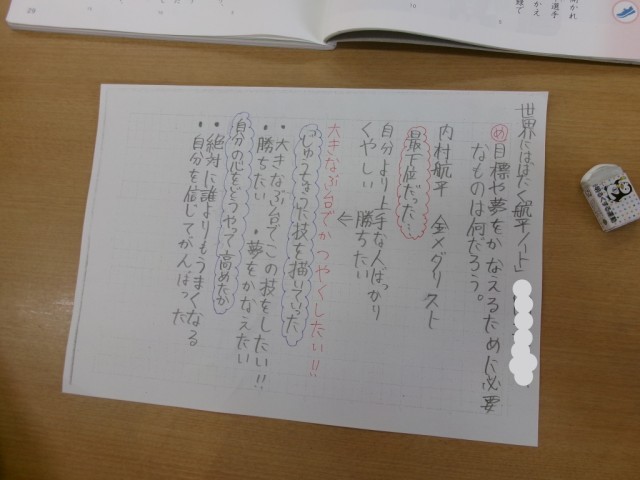 世界にはばたく「航平ノート」
め 目標や夢をかなえるために必要
なものは何だろう。
内村航平 金メダリスト
最下位だった…
自分より上手な人ばっかり
くやしい 勝ちたい
⇓
大きなぶ台でかつやくしたい!!
どしゅうちょうに技を描いていった
・大きなぶ台でこの技をしたい!!
・勝ちたい ・夢をかなえたい
自分の心をどうやって高めたか
・絶対に誰よりもうまくなる
・自分を信じてがんばった
29